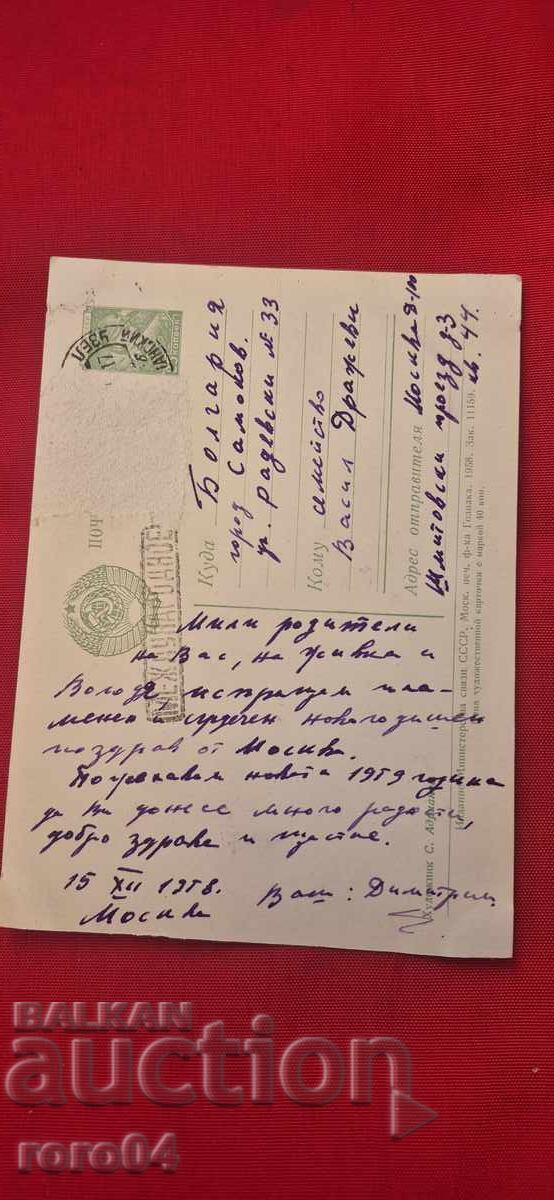 УЗЕЛ
ПОЧ
МЕЖДУНАРОДНОЕ
Куда Болгария
город Самоков.
ул. Радевски № 33
Кому семейство
Васил Дражеви
Адрес отправителя Москва Д-100
Шмитовски проезд д-3
кв. 44.
Издание Министерства связи СССР. Моск. печ. ф-ка Гознака. 1958. Зак. 11159.
художественной карточки с маркой 40 коп.
Художник С. Адрианов
Мили родители
на Вас, на Живка и
Володя, изпращам пла-
менен и сърдечен новогодишен
поздрав от Москва.
Пожелавам новата 1959 година
да Ви донесе много радости,
добро здраве и щастие.
15 XII 1958. Ваш: Димитрий
Москва
BALKAN
auction
roro04